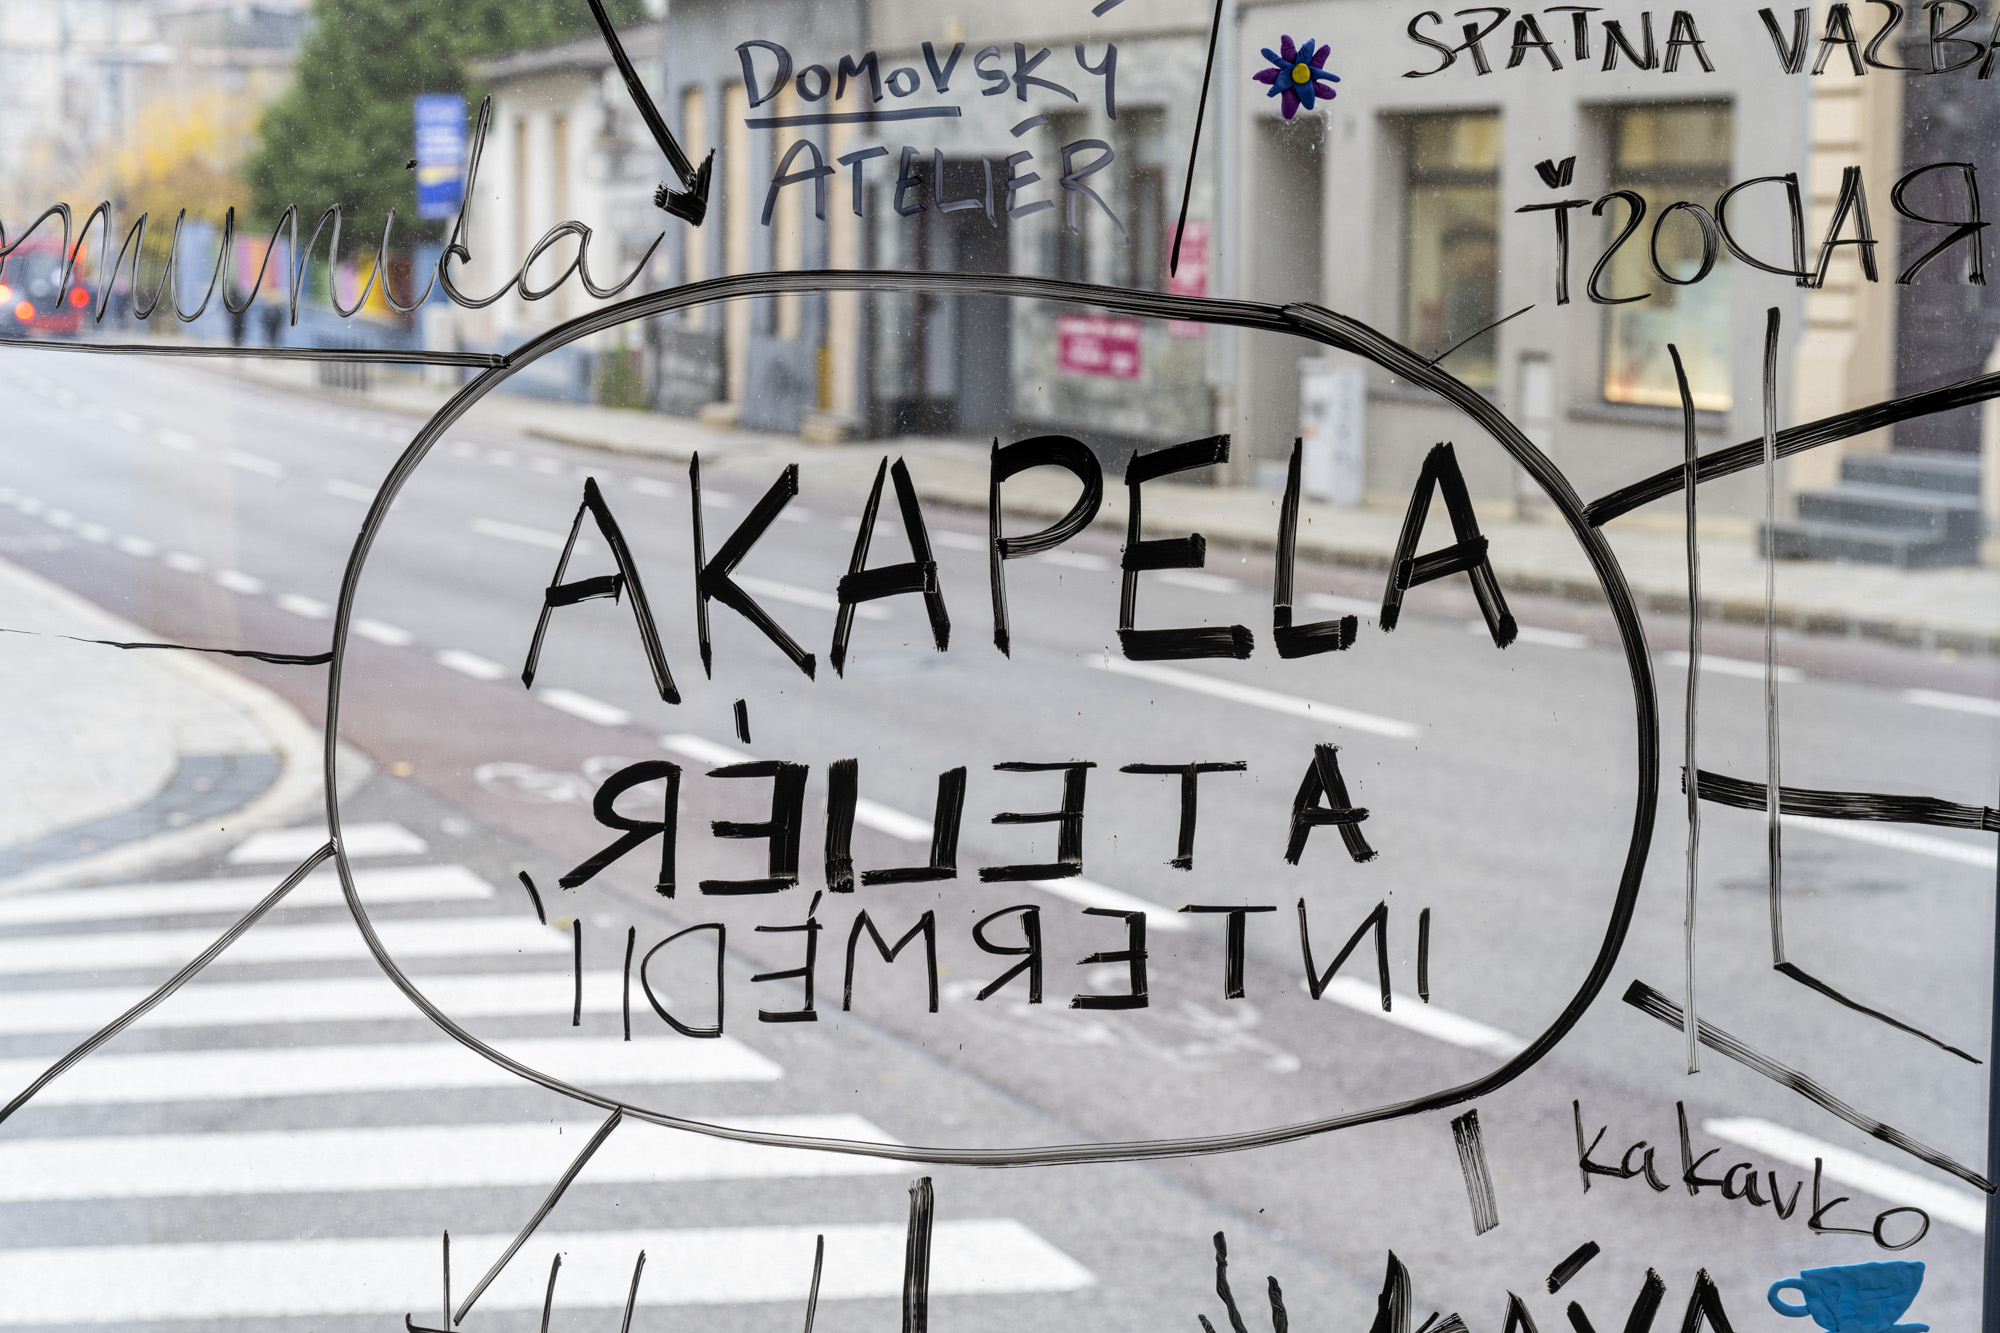 DOMOVSKÝ
ATELIÉR
SPATNA VAZBA
RADOSŤ
AKAPELA
ATELIÉR
INTERMÉDIÍ
kakavko